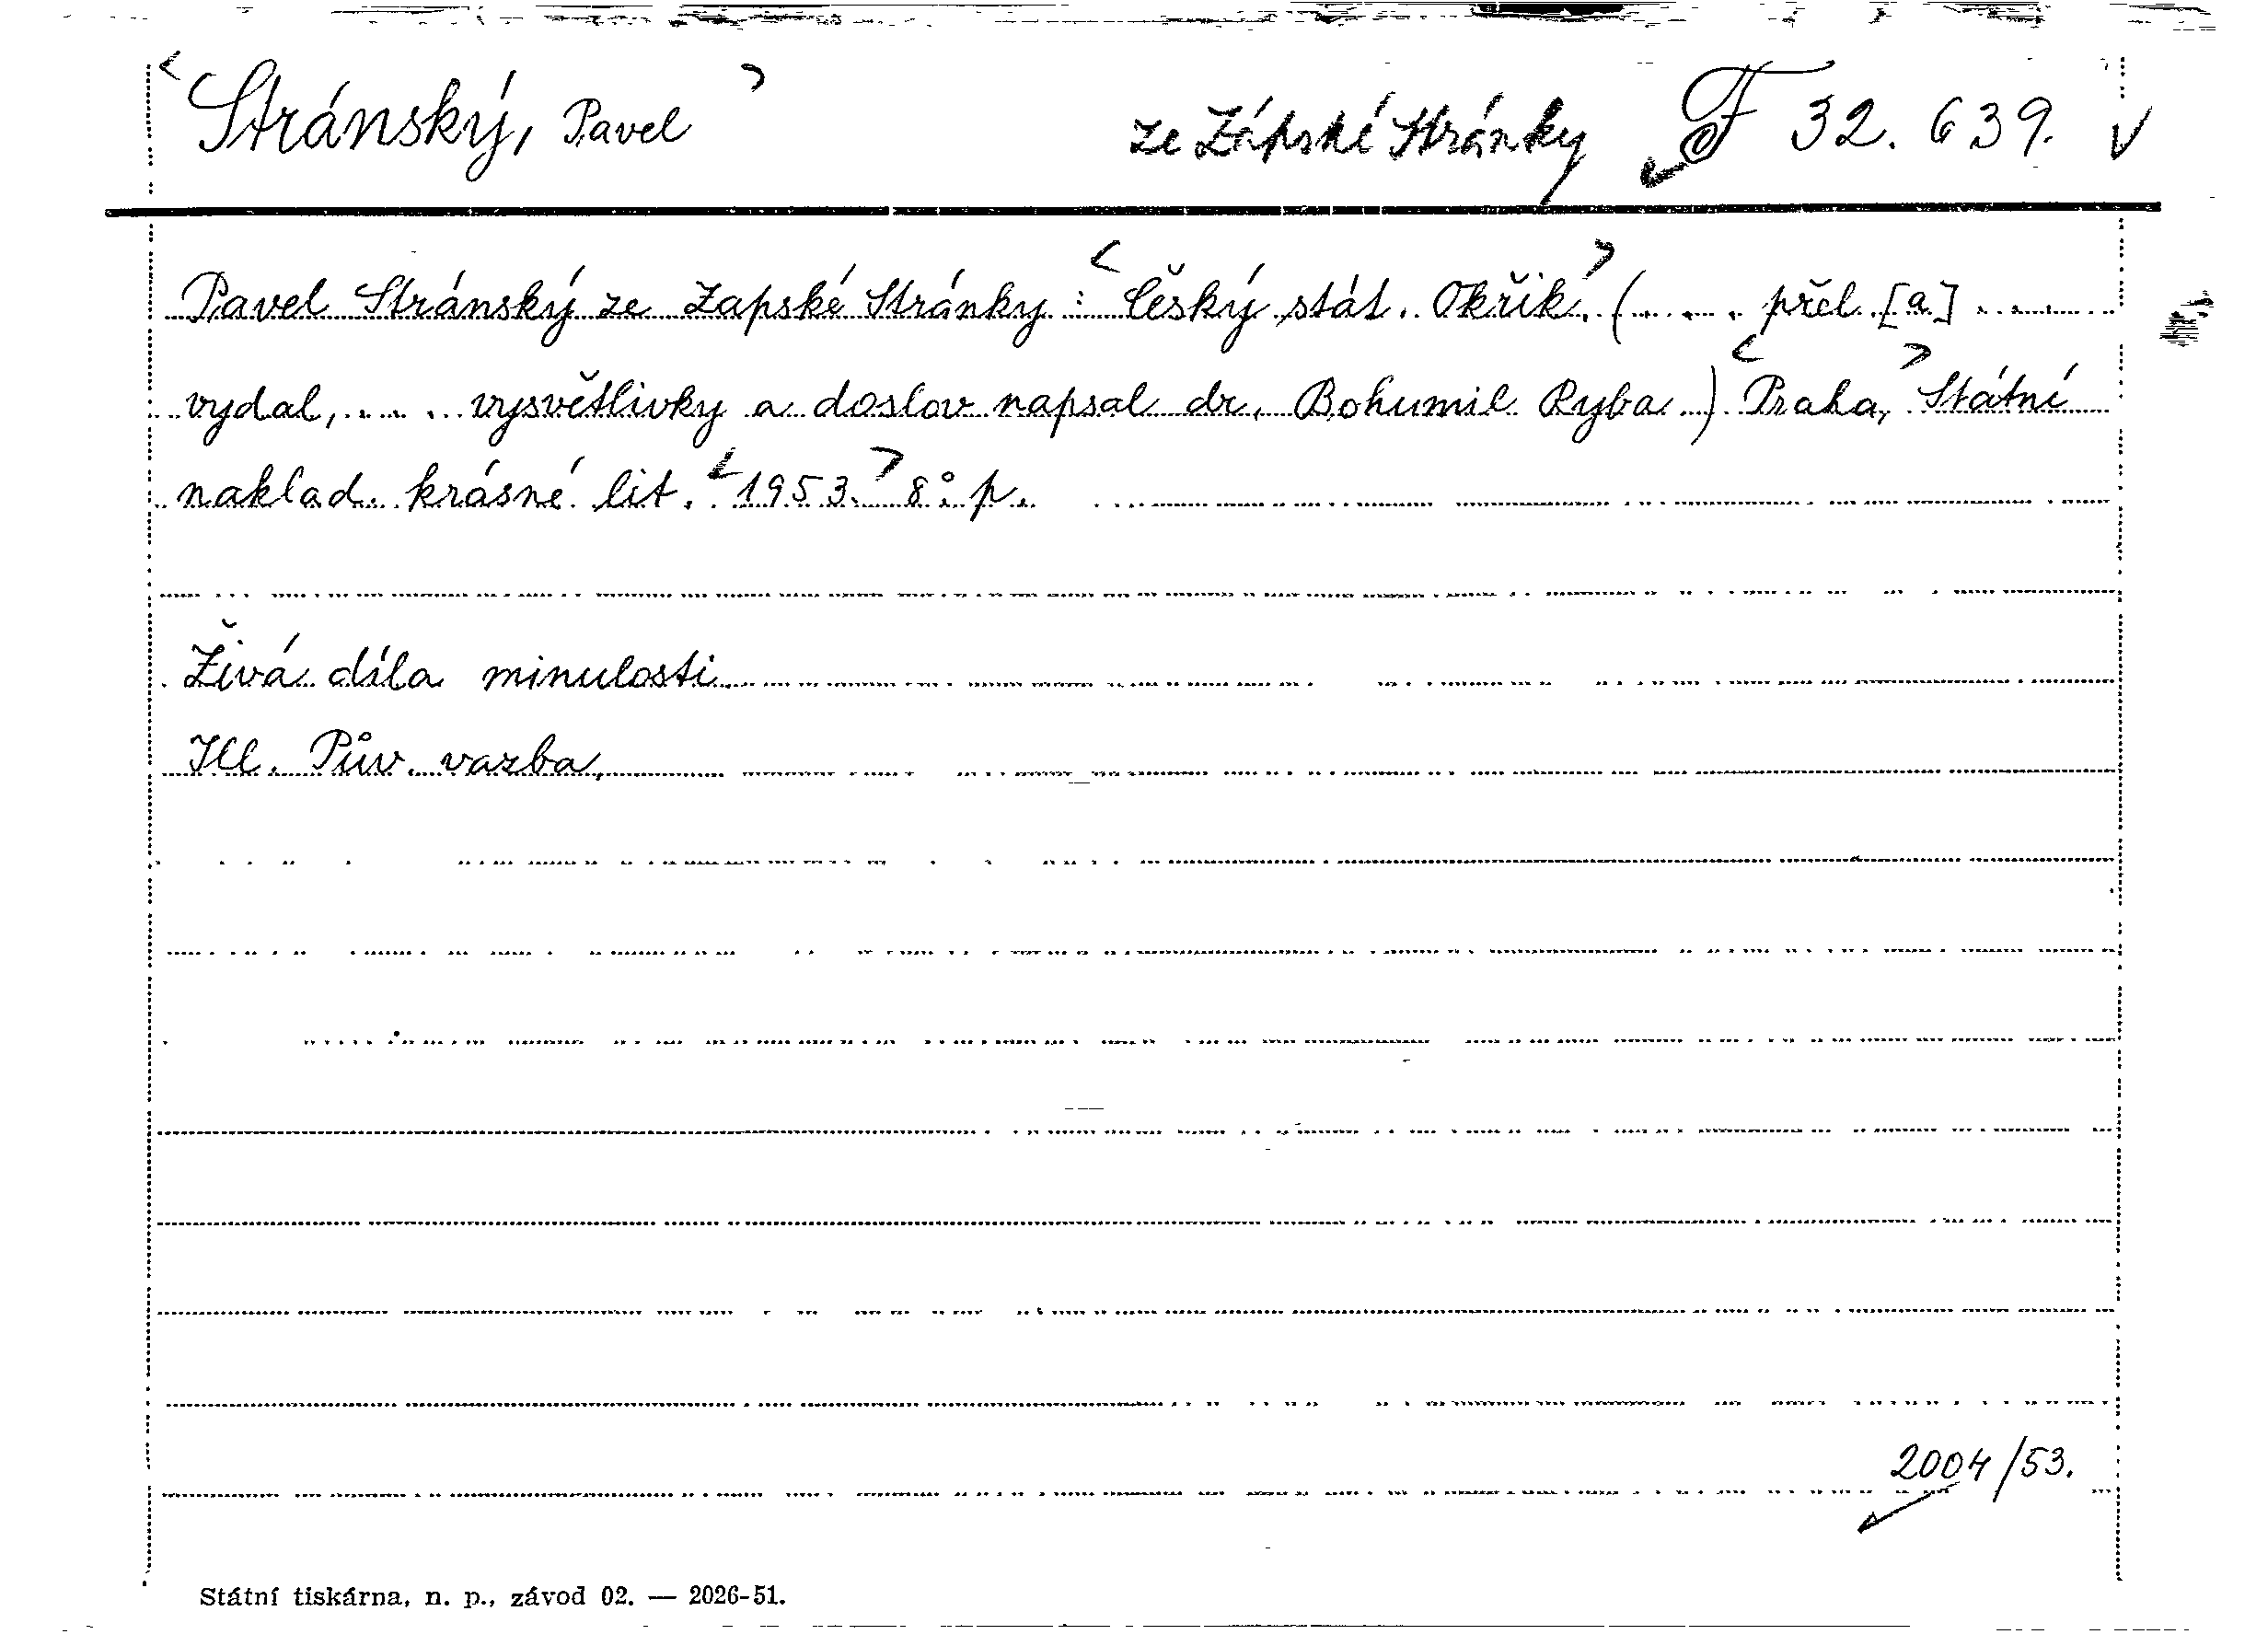 <Stránský, Pavel> ze Zápské Stránky F 32.639. v
Pavel Stránský ze Zapské Stránky : <Český stát. Okřik.> (.... přel. [a] ....
vydal, .... vysvětlivky a doslov napsal dr. Bohumil Ryba.) <Praha,> Státní
naklad. krásné lit. <1953.> 8°. p.
Živá díla minulosti.
Ill. Pův. vazba.
2004/53.
Státní tiskárna, n. p., závod 02. — 2026-51.